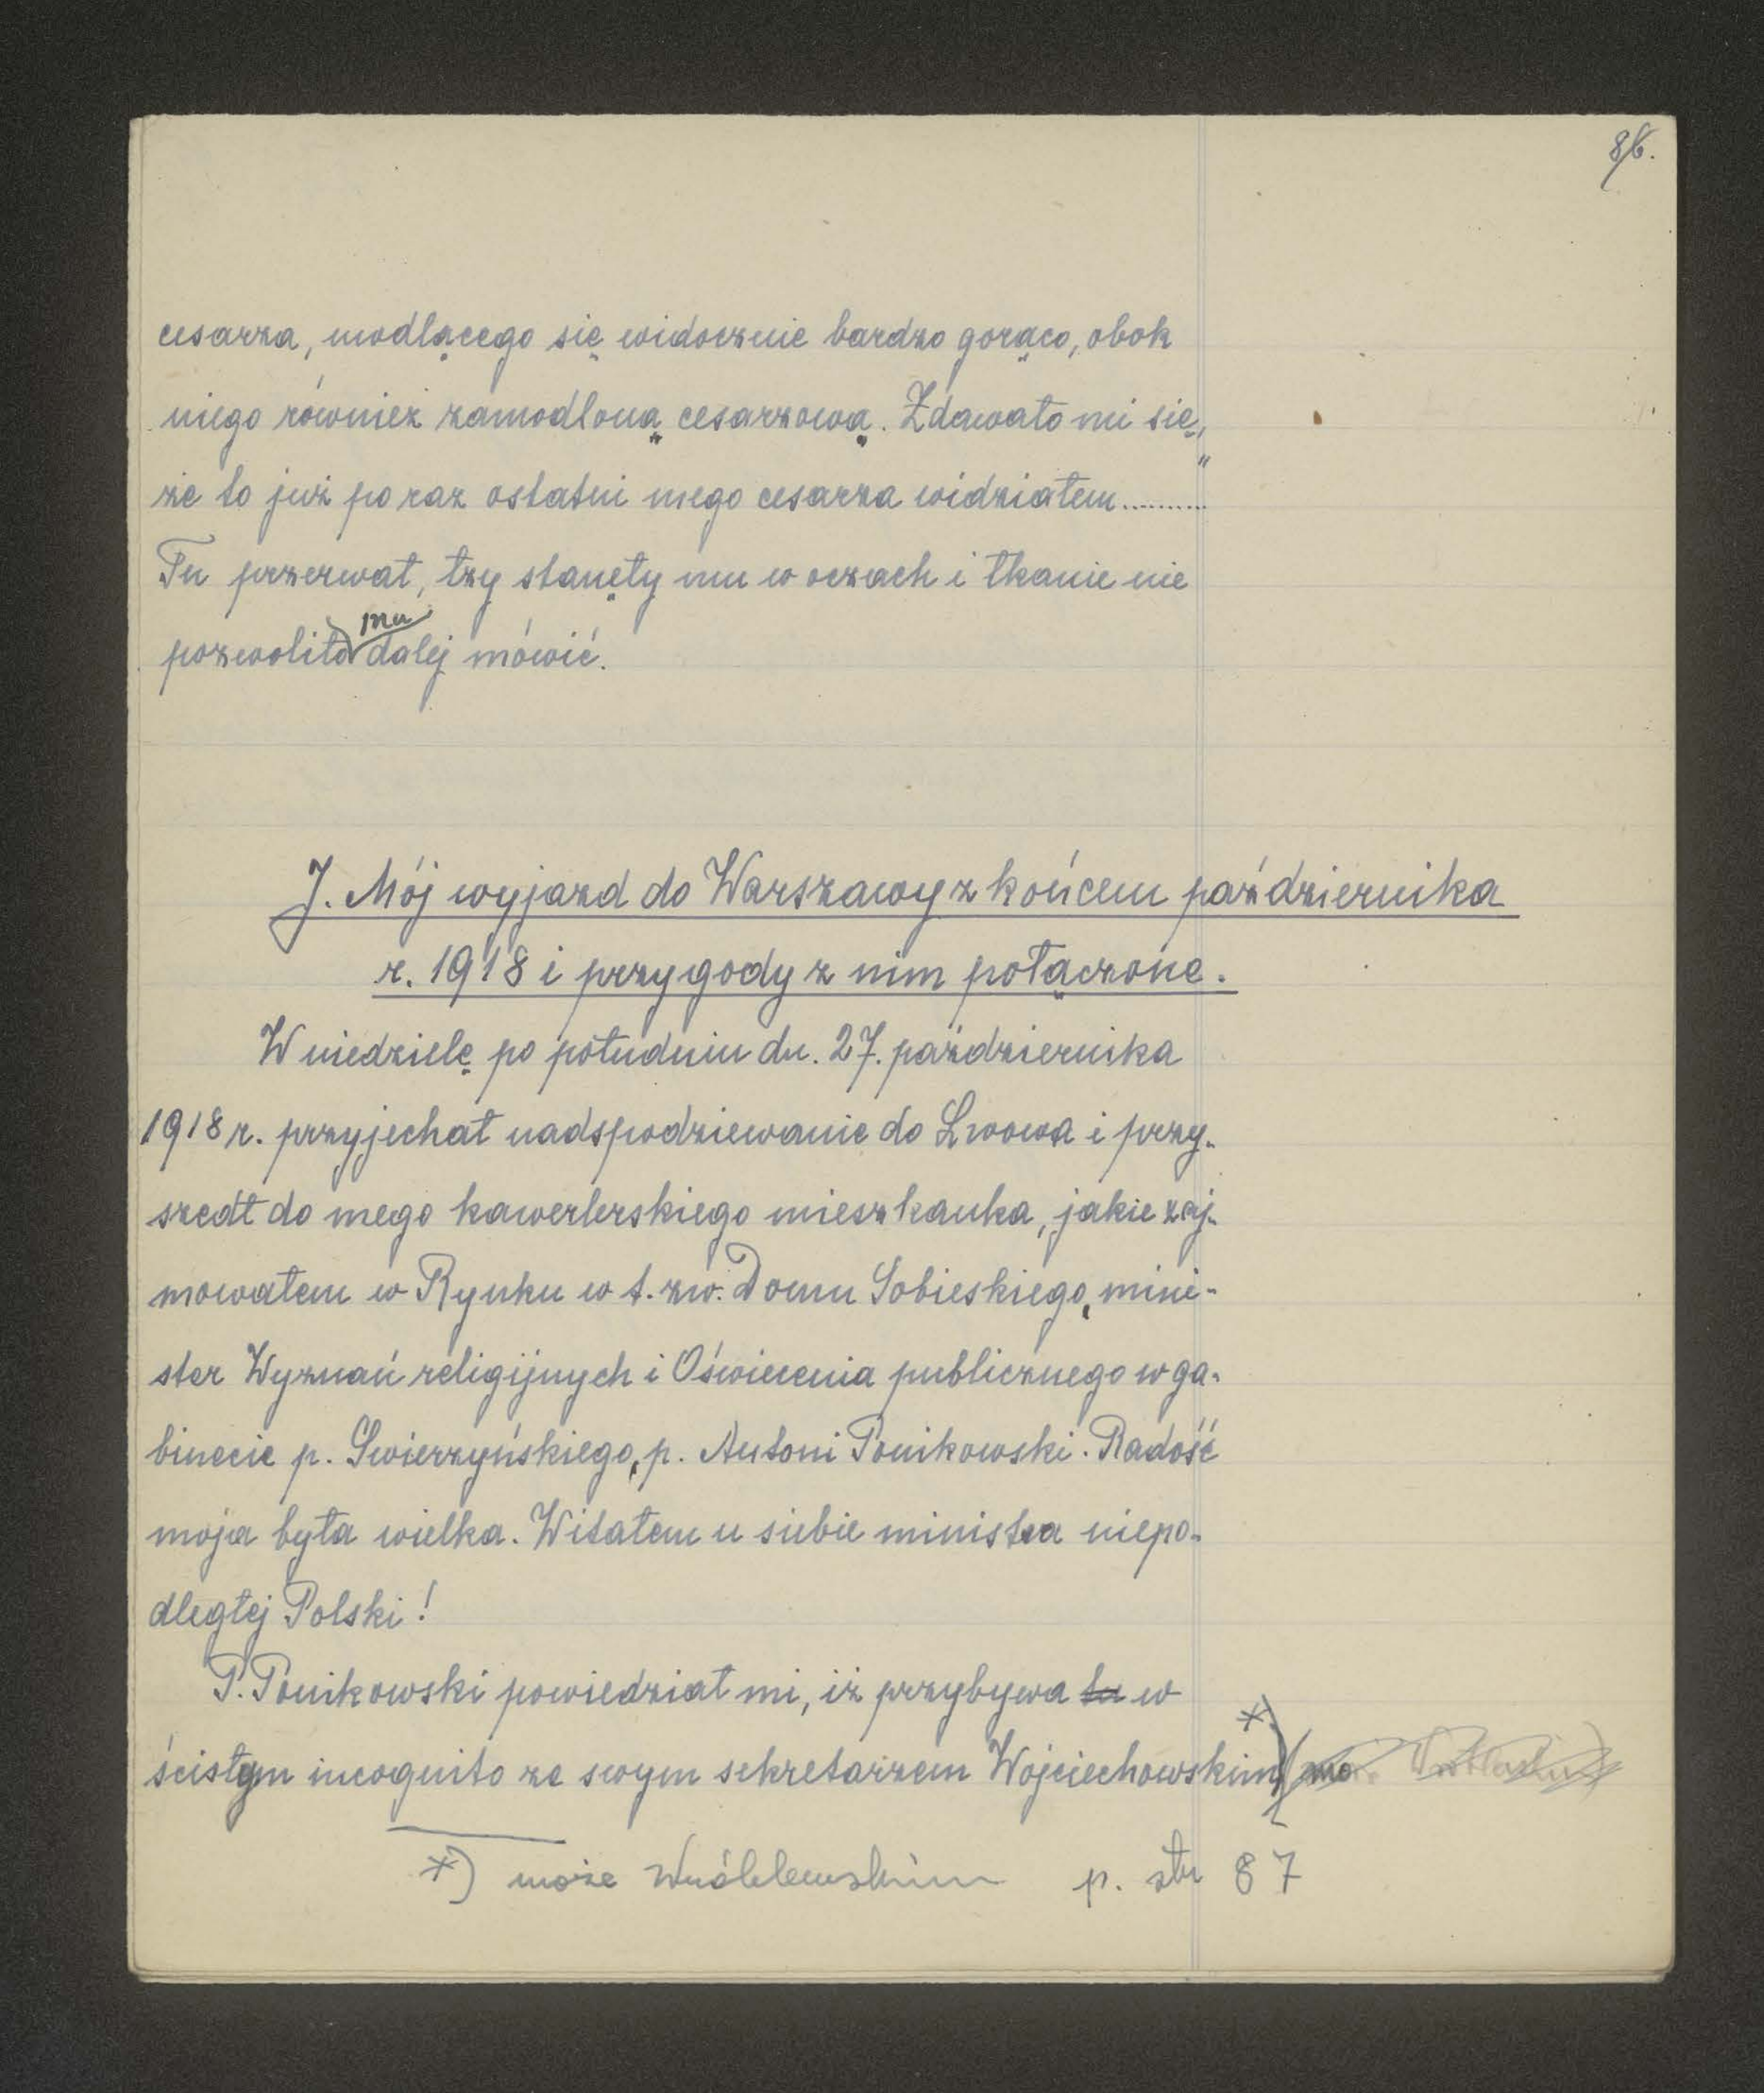 86.
cesarza, modlącego się widocznie bardzo gorąco, obok
niego również zamodloną cesarzową. Zdawało mi się,
że to już po raz ostatni mego cesarza widziałem.........."
Tu przerwał, łzy stanęły mu w oczach i łkanie nie
pozwoliło mu dalej mówić.
J. Mój wyjazd do Warszawy z końcem października
r. 1918 i przygody z nim połączone.
W niedzielę po południu dn. 27. października
1918 r. przyjechał nadspodziewanie do Lwowa i przy-
szedł do mego kawerlerskiego mieszkanka, jakie zaj-
mowałem w Rynku w t. zw. Domu Sobieskiego, mini-
ster Wyznań religijnych i Oświecenia publicznego w ga-
binecie p. Swierzyńskiego, p. Antoni Ponikowski. Radość
moja była wielka. Witałem u siebie ministra niepo-
dległej Polski!
P. Ponikowski powiedział mi, iż przybywa tu w
ścisłym incognito ze swym sekretarzem Wojciechowskim *)
*) może Wróblewskim p. str 87